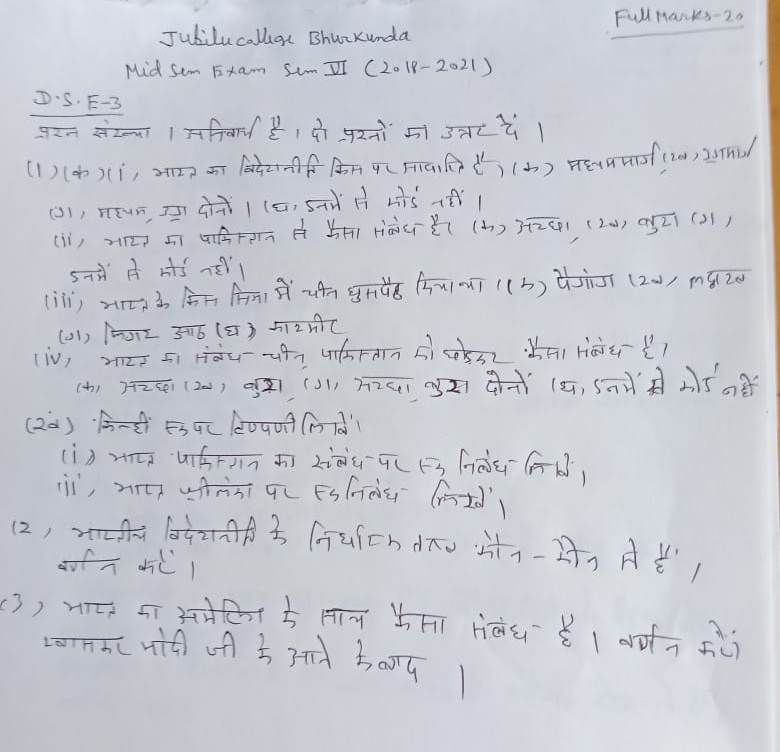 Full Marks-20
Jubilee college Bhurkunda
Mid Sem Exam Sem VI (2018-2021)
D.S.E-3
प्रश्न संख्या 1 अनिवार्य है। दो प्रश्नों का उत्तर दें।
(1)(क)(i) भारत का विदेशनीति किस पर आधारित है, (क) मध्यममार्ग (ख) उग्रमार्ग
(ग) मध्यम, उग्र दोनों। (घ) इनमें से कोई नहीं।
(ii) भारत का पाकिस्तान से कैसा संबंध है। (क) अच्छा (ख) बुरा (ग)
इनमें से कोई नहीं।
(iii) भारत के किस सिमा में चीन घुसपैठ किया था। (क) पैगोंग (ख) लद्दाख
(ग) फिंगर आठ (घ) काश्मीर
(iv) भारत का संबंध चीन, पाकिस्तान को छोड़कर कैसा संबंध है।
(क) अच्छा (ख) बुरा (ग) अच्छा बुरा दोनों (घ) इनमें से कोई नहीं
(ख) किन्हीं एक पर टिप्पणी लिखें।
(i) भारत पाकिस्तान का संबंध पर एक निबंध लिखें।
(ii) भारत श्रीलंका पर एक निबंध लिखें।
(2) भारतीय विदेशनीति के निर्धारक तत्व कौन-कौन से हैं,
वर्णन करें।
(3) भारत का अमेरिका के साथ कैसा संबंध है। वर्णन करें
खासकर मोदी जी के आने के बाद।